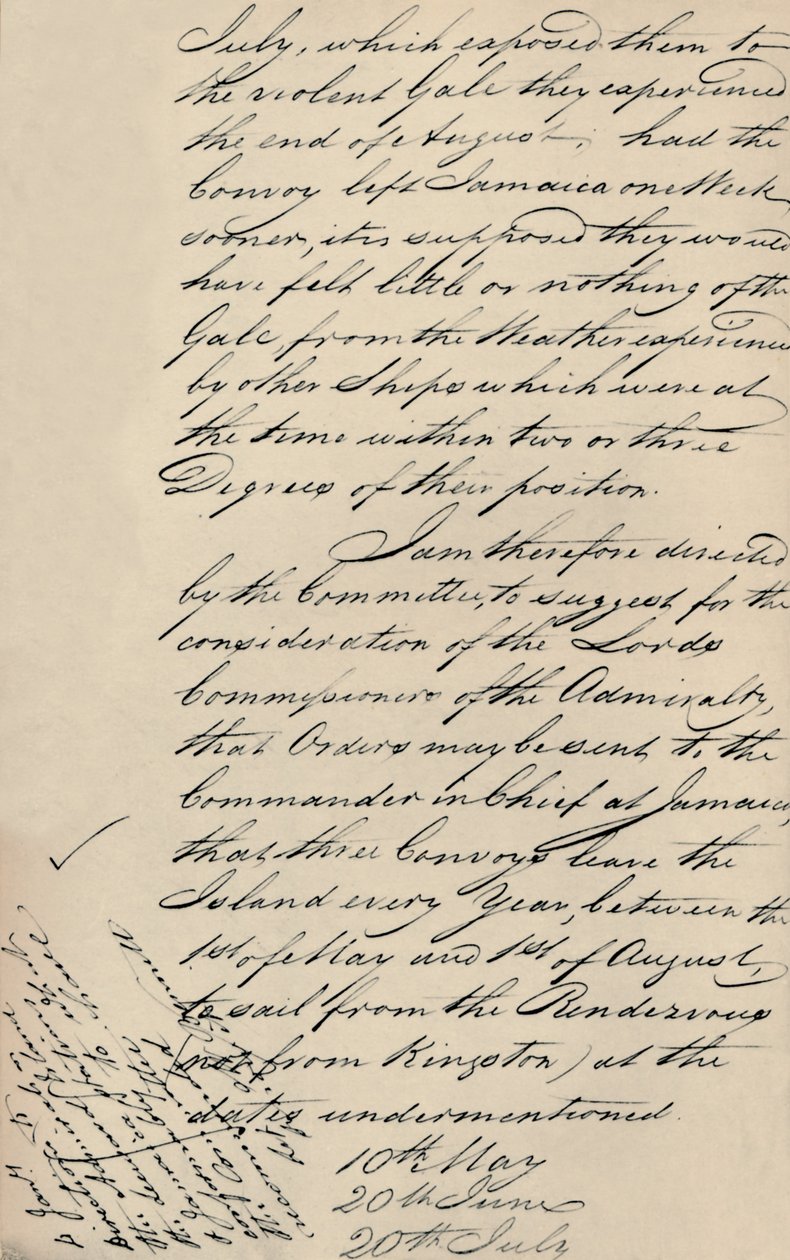 July, which exposed them to
the violent Gale they experienced
the end of August; had the
Convoy left Jamaica one Week
sooner, it is supposed they would
have felt little or nothing of the
Gale, from the Weather experienced
by other Ships which were at
the time within two or three
Degrees of their position.
I am therefore directed
by the Committee, to suggest for the
consideration of the Lords
Commissioners of the Admiralty,
that Orders may be sent to the
Commander in Chief at Jamaica,
that three Convoys leave the
Island every Year, between the
1st of May and 1st of August,
to sail from the Rendezvous
(not from Kingston) at the
dates undermentioned.
10th May
20th June
20th July
Directions to
the Admirals
the Leeward Island
& Jamaica Stations
conformably to what
the Committee have
recommended